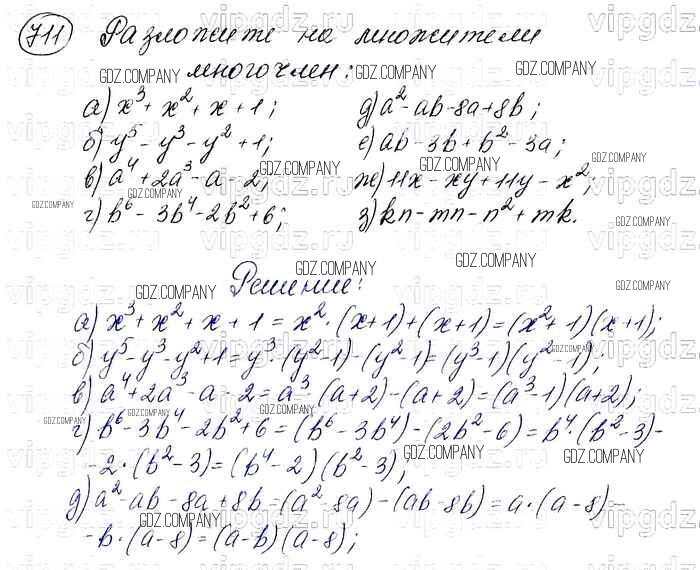 711 Разложите на множители
многочлен:
а) x³ + x² + x + 1;
б) y⁵ - y³ - y² + 1;
в) a⁴ + 2a³ - a - 2;
г) b⁶ - 3b⁴ - 2b² + 6;
д) a² - ab - 8a + 8b;
е) ab - 3b + b² - 3a;
ж) 11x - xy + 11y - x²;
з) kn - mn - n² + mk.
Решение:
а) x³ + x² + x + 1 = x² · (x+1) + (x+1) = (x² + 1)(x+1);
б) y⁵ - y³ - y² + 1 = y³ · (y² - 1) - (y² - 1) = (y³ - 1)(y² - 1);
в) a⁴ + 2a³ - a - 2 = a³ · (a+2) - (a+2) = (a³ - 1)(a+2);
г) b⁶ - 3b⁴ - 2b² + 6 = (b⁶ - 3b⁴) - (2b² - 6) = b⁴ · (b² - 3) -
- 2 · (b² - 3) = (b⁴ - 2)(b² - 3);
д) a² - ab - 8a + 8b = (a² - 8a) - (ab - 8b) = a · (a - 8) -
- b · (a - 8) = (a - b)(a - 8);
GDZ.COMPANY
vipgdz.ru